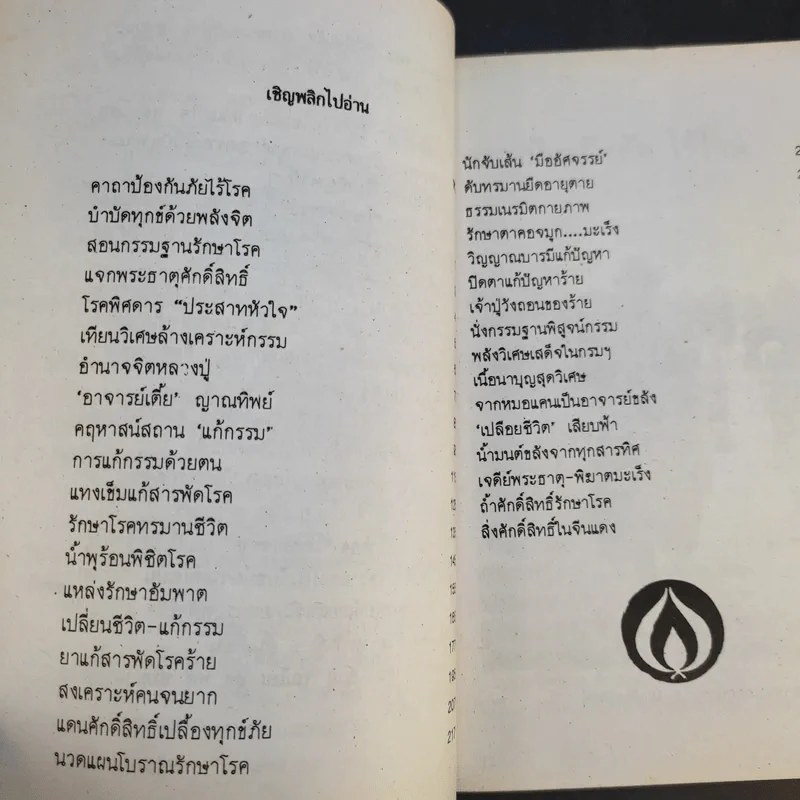 เชิญพลิกไปอ่าน
คาถาป้องกันภัยไร้โรค
บำบัดทุกข์ด้วยพลังจิต
สอนกรรมฐานรักษาโรค
แจกพระธาตุศักดิ์สิทธิ์
โรคพิศดาร "ประสาทหัวใจ"
เทียนวิเศษล้างเคราะห์กรรม
อำนาจจิตหลวงปู่
'อาจารย์เตี้ย' ญาณทิพย์
คฤหาสน์สถาน 'แก้กรรม'
การแก้กรรมด้วยตน
แทงเข็มแก้สารพัดโรค
รักษาโรคทรมานชีวิต
น้ำพุร้อนพิชิตโรค
แหล่งรักษาอัมพาต
เปลี่ยนชีวิต-แก้กรรม
ยาแก้สารพัดโรคร้าย
สงเคราะห์คนจนยาก
แดนศักดิ์สิทธิ์เปลื้องทุกข์ภัย
นวดแผนโบราณรักษาโรค
นักจับเส้น 'มืออัศจรรย์'
ดับทรมานยืดอายุตาย
ธรรมเนรมิตกายภาพ
รักษาตาคอจมูก....มะเร็ง
วิญญาณบารมีแก้ปัญหา
ปิดตาแก้ปัญหาร้าย
เจ้าปู่วังถอนของร้าย
นั่งกรรมฐานพิสูจน์กรรม
พลังวิเศษเสด็จในกรมฯ
เนื้อนาบุญสุดวิเศษ
จากหมอแคนเป็นอาจารย์ขลัง
'เปลือยชีวิต' เสียบฟ้า
น้ำมนต์ขลังจากทุกสารทิศ
เจดีย์พระธาตุ-พิฆาตมะเร็ง
ถ้ำศักดิ์สิทธิ์รักษาโรค
สิ่งศักดิ์สิทธิ์ในจีนแดง